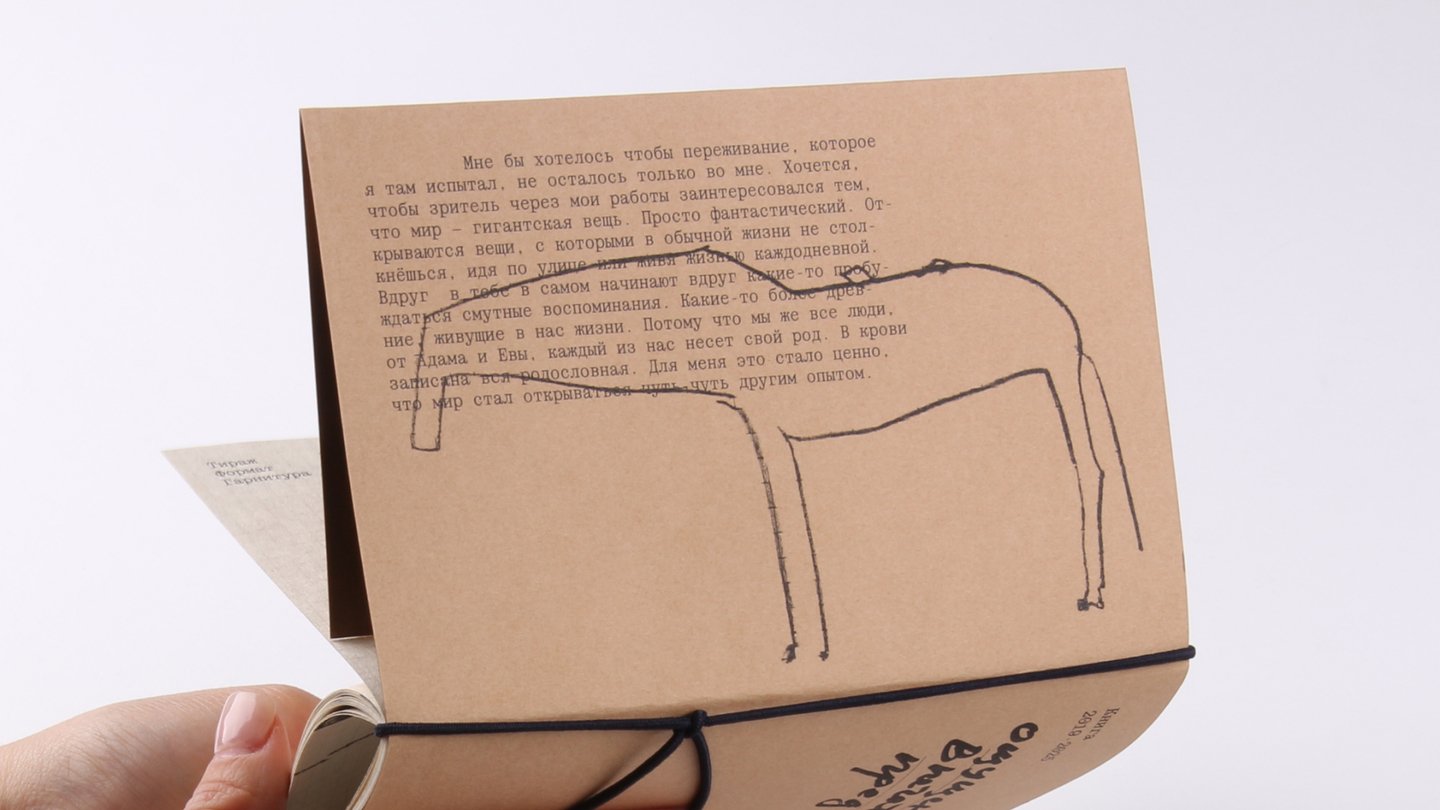 Мне бы хотелось чтобы переживание, которое
я там испытал, не осталось только во мне. Хочется,
чтобы зритель через мои работы заинтересовался тем,
что мир – гигантская вещь. Просто фантастический. От-
крываются вещи, с которыми в обычной жизни не стол-
кнёшься, идя по улице или живя жизнью каждодневной.
Вдруг в тебе в самом начинают вдруг какие-то пробу-
ждаться смутные воспоминания. Какие-то более древ-
ние, живущие в нас жизни. Потому что мы же все люди,
от Адама и Евы, каждый из нас несет свой род. В крови
записана вся родословная. Для меня это стало ценно,
что мир стал открываться чуть-чуть другим опытом.
Тираж
Формат
Гарнитура
Книга
2019-2020